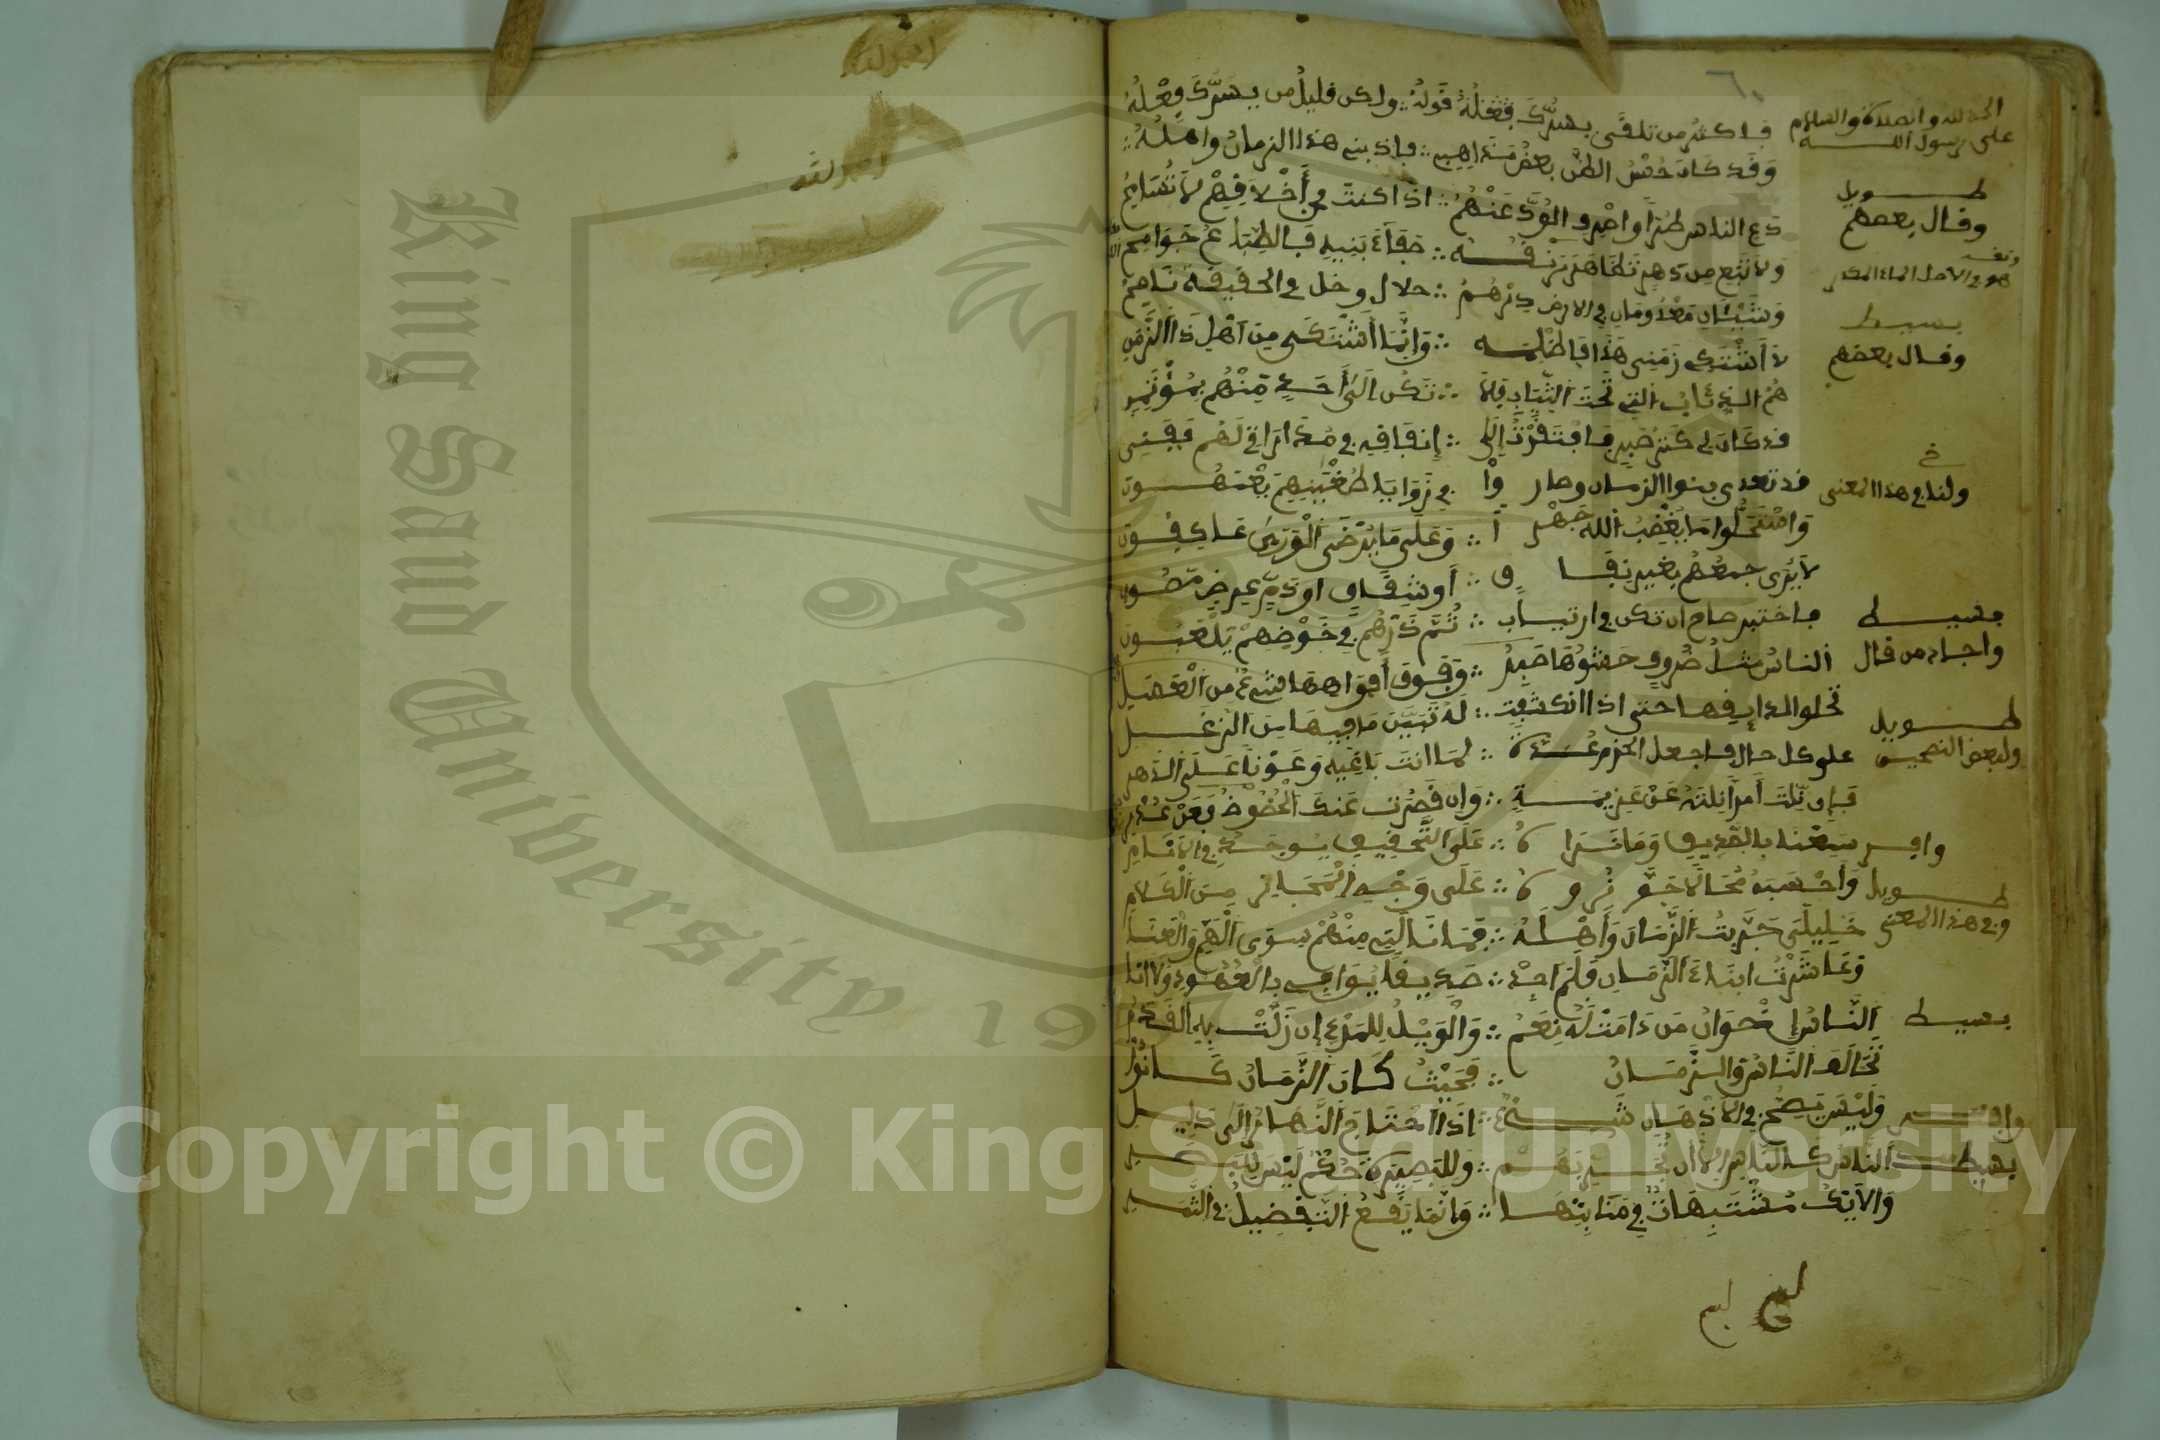 الحمد لله والصلاة والسلام
على رسول الله
فاكثر من تلقى يسرك قوله ∴ ولكن قليل من يسرك فعله
وقد كان حسن الظن بعض مذاهبي ∴ فادبني هذا الزمان واهله
طويل
وقال بعضهم
دع الناس طرا واصرف الود عنهم ∴ اذا كنت في أخلاقهم لا تسامح
ولا تبغ من دهر تظاهر رنقه ∴ صفاء بنيه فالطباع جوامح
وشيئان معدومان في الارض درهم ∴ حلال وخل في الحقيقة ناصح
بسيط
وقال بعضهم
لا أشتكي زمني هذا فاظلمه ∴ وإنما أشتكي من أهل ذا الزمن
هم الذئاب التي تحت الثياب فلا ∴ تكن الى أحد منهم بمؤتمن
قد كان لي كنز صبر فافتقرت إلى ∴ إنفاقه في مداراتي لهم ففني
ولنا في هذا المعنى
قد تعدى بنوا الزمان وصاروا ∴ في زوايا طغيانهم يعمهون
وامتطوا ما يغضب الله جهرا ∴ وعلى ما يرضي الورى عاكفون
لا يرى جمعهم بغير نفاق ∴ أو شقاق او ذم عرض مصون
فاختبر صاح ان تكن في ارتياب ∴ ثم ذرهم في خوضهم يلعبون
بسيط
واجاد من قال
الناس مثل ظروف حشوها صبر ∴ وفوق أفواهها شيء من العسل
تحلو لذائقها حتى اذا انكشفت ∴ له تبين ما فيها من الزغل
طويل
ولبعض
على كل حال فاجعل الحزم عدة ∴ لما انت باغيه وعونا على الدهر
فإن نلت أمرا نلته عن عزيمة ∴ وإن قصرت عنك الحظوظ فعن عذر
وافر
سمعنا بالصديق وما نراه ∴ على التحقيق يوجد في الأنام
وأحسبه محالا جوزوه ∴ على وجه المجاز من الكلام
طويل
وفي هذا المعنى
خليلي جربت الزمان وأهله ∴ فما نالني منهم سوى الهم والعنا
وعاشرت ابناء الزمان فلم اجد ∴ صديقا يوافي بالعهود ولا انا
بسيط
الناس إخوان من دامت له نعم ∴ والويل للمرء إن زلت به القدم
تحالف الناس والزمان ∴ فحيث كان الزمان كانوا
وافر
وليس يصح في الأذهان شيء ∴ إذا احتاج النهار إلى دليل
بسيط
الناس كالناس إلا أن تجربهم ∴ وللبصيرة حكم ليس للبصر
والأيك مشتبهات في منابتها ∴ وإنما يقع التفضيل في الثمر
الحمد لله
الحمد لله
King Saud University 1957
Copyright © King Saud University